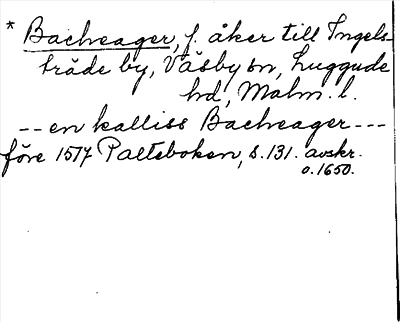 * Bacheager, f. åker till Ingels-
träde by, Väsby sn, Luggude
hd, Malm. l.
-- en kalliss Bacheager ---
före 1577 Palteboken, s. 131. avskr.
o. 1650.